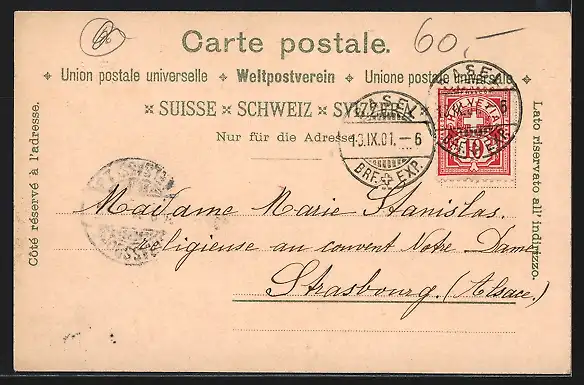 60,—
Carte postale.
Union postale universelle Weltpostverein Unione postale universale
SUISSE SCHWEIZ SVIZZERA
Nur für die Adresse.
Côté réservé à l'adresse.
Lato riservato all' indirizzo.
HELVETIA
10
BASEL
IX.01.–6
BRF. EXP.
Madame Marie Stanislas.
Religieuse au couvent Notre Dame
Strasbourg. (Alsace.)